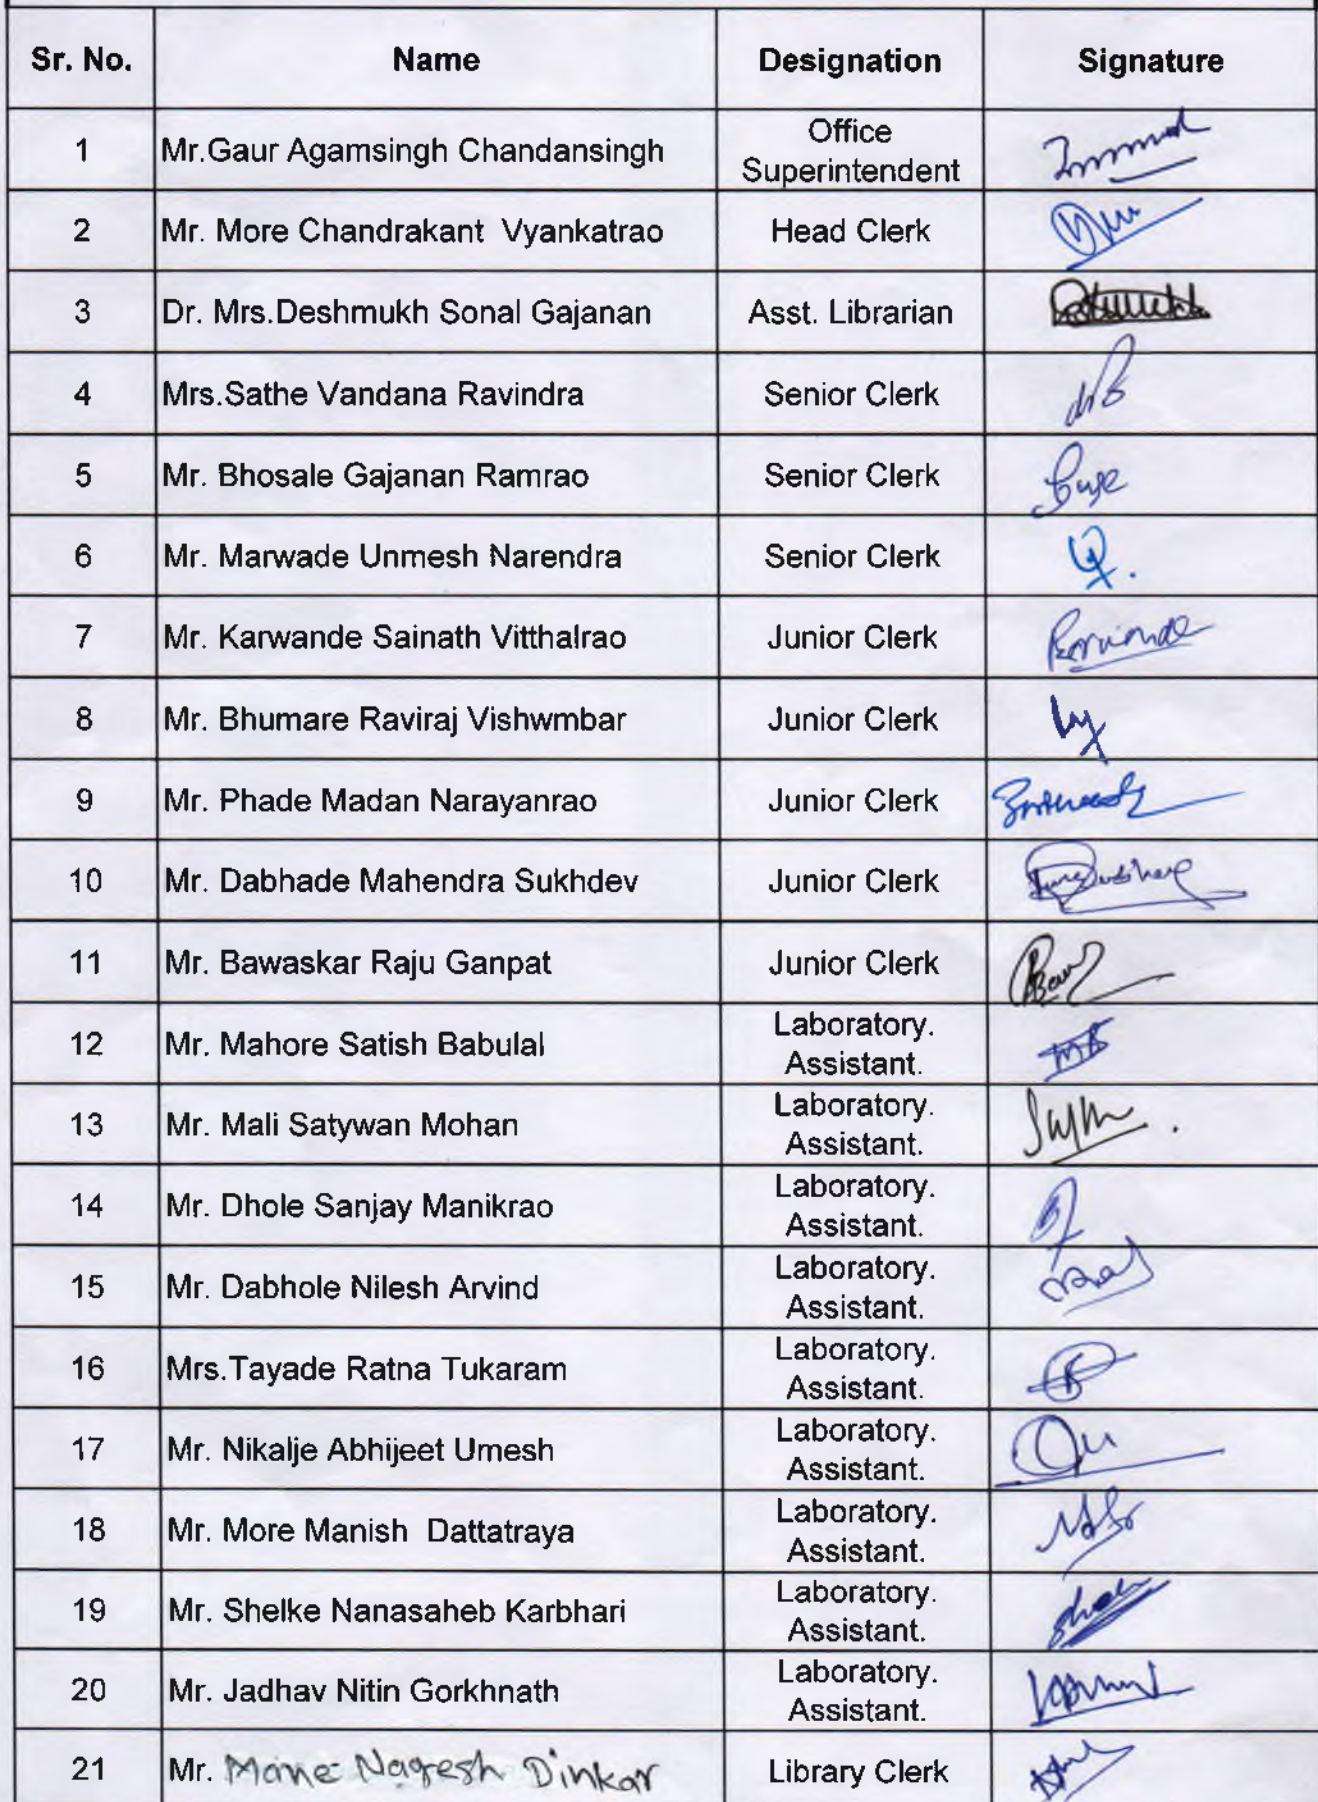 Sr. No. Name Designation Signature
1 Mr.Gaur Agamsingh Chandansingh Office
Superintendent
2 Mr. More Chandrakant Vyankatrao Head Clerk
3 Dr. Mrs.Deshmukh Sonal Gajanan Asst. Librarian
4 Mrs.Sathe Vandana Ravindra Senior Clerk
5 Mr. Bhosale Gajanan Ramrao Senior Clerk
6 Mr. Marwade Unmesh Narendra Senior Clerk
7 Mr. Karwande Sainath Vitthalrao Junior Clerk
8 Mr. Bhumare Raviraj Vishwmbar Junior Clerk
9 Mr. Phade Madan Narayanrao Junior Clerk
10 Mr. Dabhade Mahendra Sukhdev Junior Clerk
11 Mr. Bawaskar Raju Ganpat Junior Clerk
12 Mr. Mahore Satish Babulal Laboratory.
Assistant.
13 Mr. Mali Satywan Mohan Laboratory.
Assistant.
14 Mr. Dhole Sanjay Manikrao Laboratory.
Assistant.
15 Mr. Dabhole Nilesh Arvind Laboratory.
Assistant.
16 Mrs.Tayade Ratna Tukaram Laboratory.
Assistant.
17 Mr. Nikalje Abhijeet Umesh Laboratory.
Assistant.
18 Mr. More Manish Dattatraya Laboratory.
Assistant.
19 Mr. Shelke Nanasaheb Karbhari Laboratory.
Assistant.
20 Mr. Jadhav Nitin Gorkhnath Laboratory.
Assistant.
21 Mr. Mane Nagesh Dinkar Library Clerk